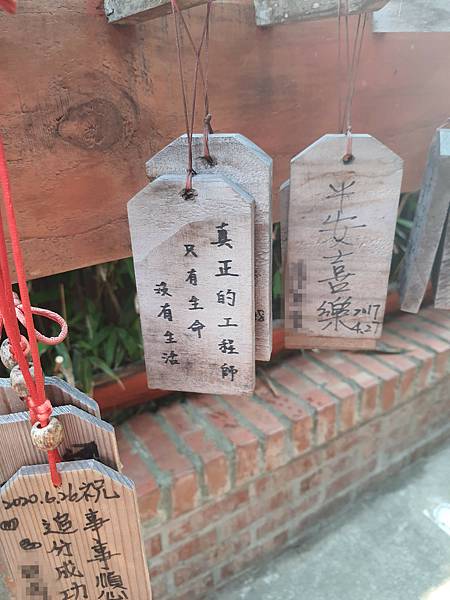 真正的工程師
只有生命
沒有生活
平安喜樂
2017
4.27
2020.6.26祝
事事順
追分成功